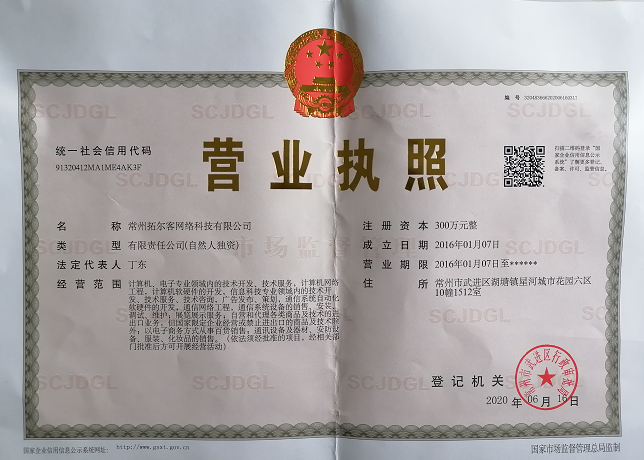 编 号 320483666202006160317
统一社会信用代码
91320412MA1ME4AK3F
营业执照
扫描二维码登录“国
家企业信用信息公示
系统”了解更多登记、
备案、许可、监管信息。
名 称 常州拓尔客网络科技有限公司
类 型 有限责任公司(自然人独资)
法定代表人 丁东
经营范围 计算机、电子专业领域内的技术开发、技术服务，计算机网络
工程、计算机软硬件的开发、信息科技专业领域内的技术开
发、技术服务、技术咨询，广告发布、策划，通信系统自动化
软硬件的开发，通信网络工程，通信系统设备的销售、安装、
调试、维护，展览展示服务；自营和代理各类商品及技术的进
出口业务，但国家限定企业经营或禁止进出口的商品及技术除
外；以电子商务方式从事百货销售；通讯设备及器材、安防设
备、服装、化妆品的销售。（依法须经批准的项目，经相关部
门批准后方可开展经营活动）
注册资本 300万元整
成立日期 2016年01月07日
营业期限 2016年01月07日至******
住 所 常州市武进区湖塘镇星河城市花园六区
10幢1512室
登记机关
常州市武进区行政审批局
2020 年 06 月 16 日
国家企业信用信息公示系统网址： http://www.gsxt.gov.cn
国家市场监督管理总局监制
SCJDGL
SCJDGL
SCJDGL
SCJDGL
SCJDGL
SCJDGL
市场监督